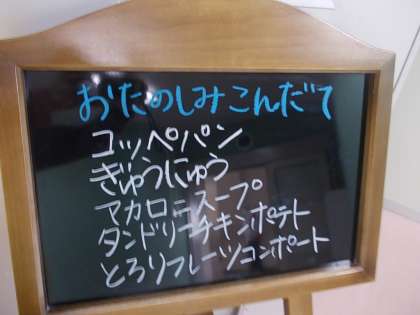 おたのしみこんだて
コッペパン
ぎゅうにゅう
マカロニスープ
タンドリーチキンポテト
とろりフレーツコンポート